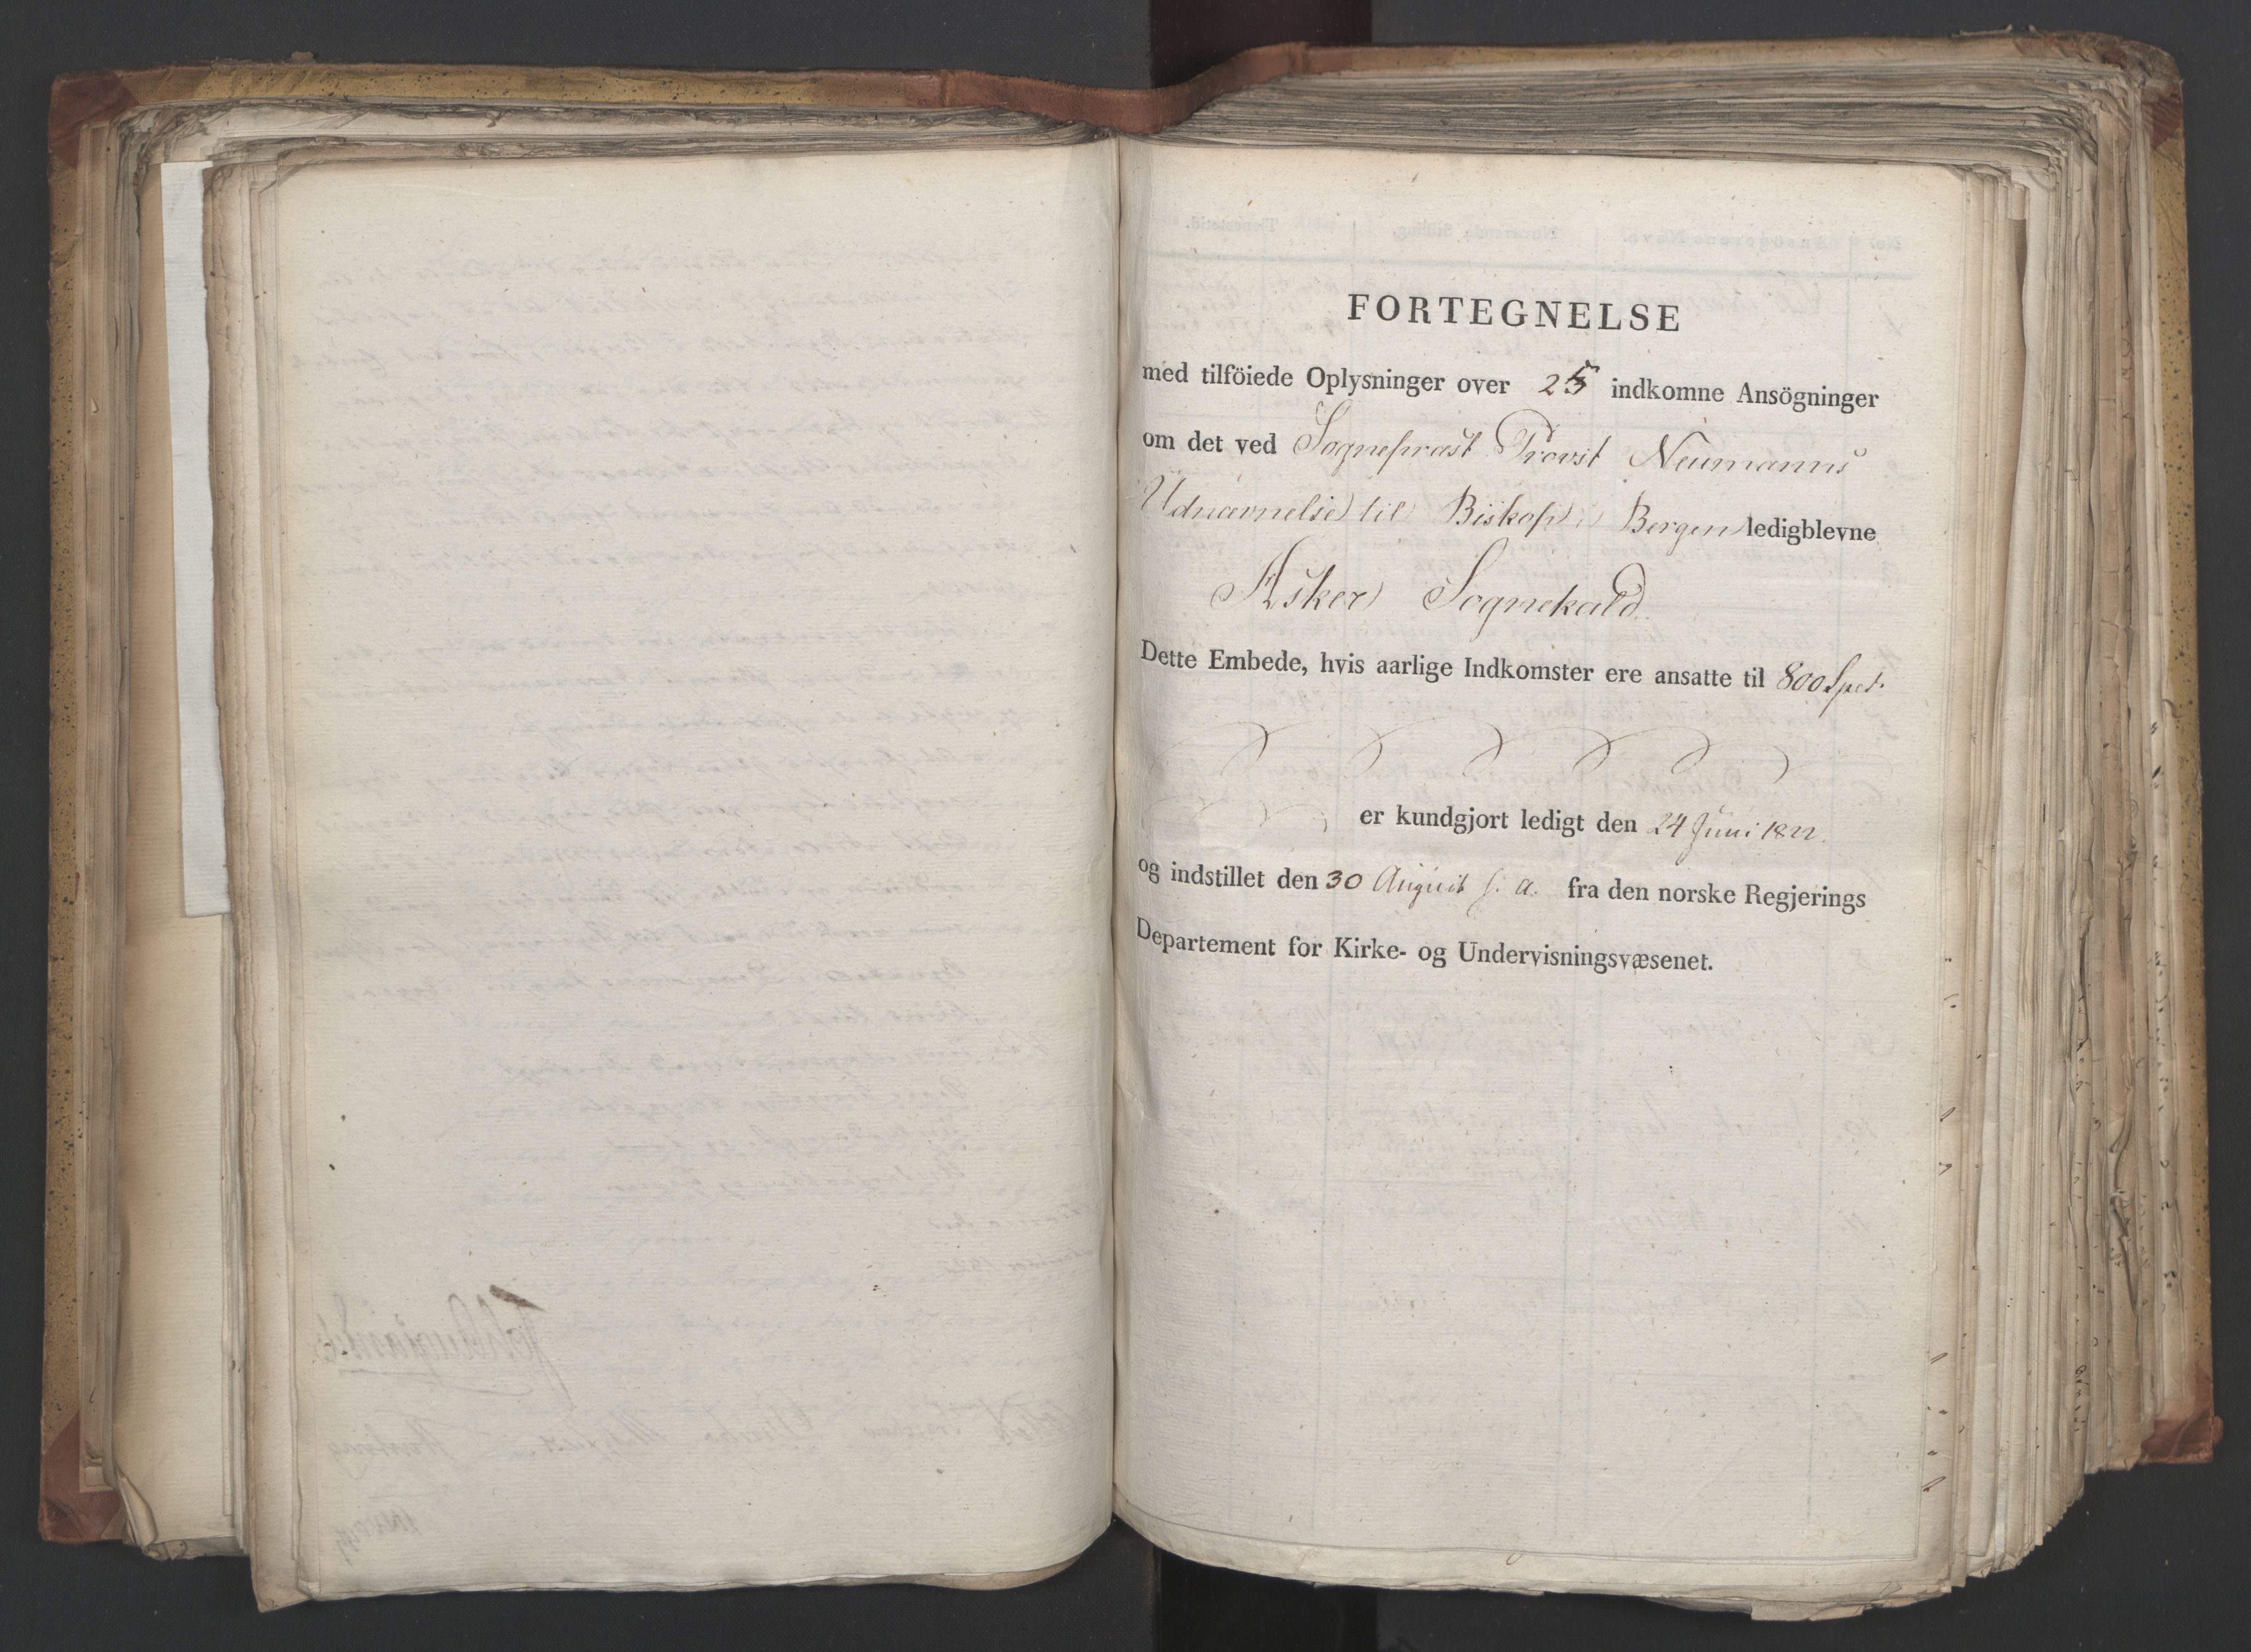 FORTEGNELSE
med tilföiede Oplysninger over 25 indkomne Ansögninger
om det ved Sognepræst Provst Neumanns
Udnævnelse til Biskop i Bergen ledigblevne
Asker Sognekald
Dette Embede, hvis aarlige Indkomster ere ansatte til 800 Spd.
er kundgjort ledigt den 24 Juni 1822.
og indstillet den 30 August s. a. fra den norske Regjerings
Departement for Kirke- og Undervisningsvæsenet.